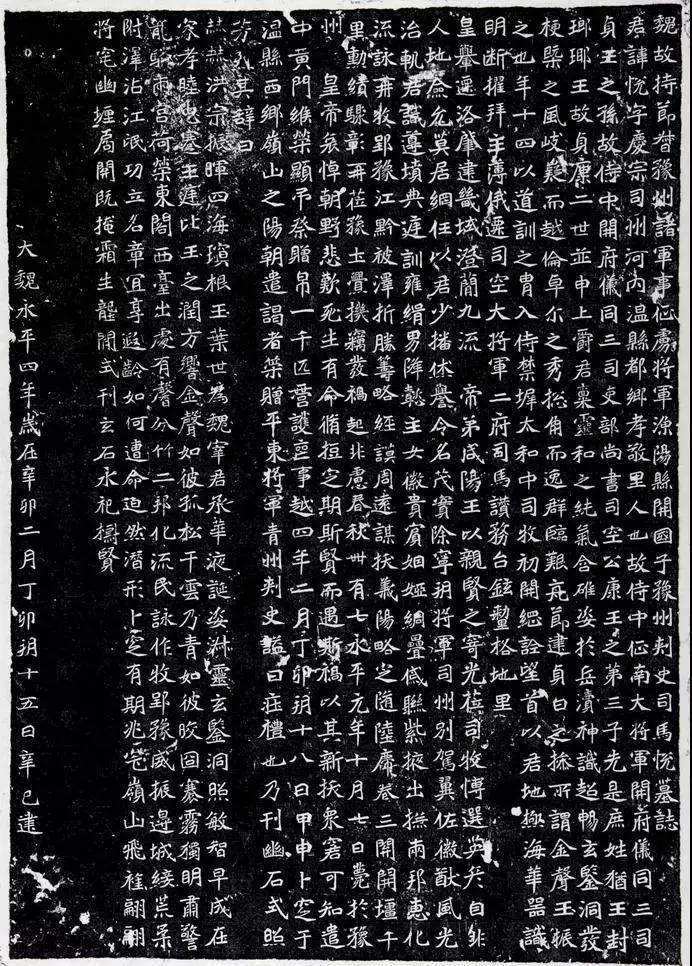 魏故持節督豫州諸軍事征虜將軍漁陽縣開國子豫州刺史司馬悅墓誌
君諱悅字慶宗司州河內溫縣都鄉孝敬里人也故侍中征南大將軍開府儀同三司
貞王之孫故侍中開府儀同三司吏部尚書司空公康王之第三子先是庶姓猶王封
瑯瑘王故貞康二世並申上爵君稟靈和之純氣含雄姿於岳瀆神識超暢玄鑒洞發
梗槩之風岐嶷而越倫卓尒之秀捴角而逸群臨艱亮節建貞白之操所謂金聲玉振
之也年十四以道訓之胄入侍禁墀太和中司牧初開綱詮望首以君地極海華器識
明斷擢拜主簿俄遷司空大將軍二府司馬讚務台鉉釐格地里
皇輿遷洛肇建畿域澄簡九流 帝弟咸陽王以親賢之寄光莅司牧愽選英彥自非
人地僉允莫居綱任以君少播休譽令名茂實除寧朔將軍司州別駕翼佐徽猷風光
治軌君識遵墳典庭訓雍緝男降懿主女徽貴賓姻婭綢疊戚聯紫掖出撫兩邦惠化
流詠再牧郢豫江黔被澤折勝籌略經謨周遠謀拔義陽略定隨陸廉巷三開開壃千
里勳績驟章再莅豫土舋撥竊發禍起非慮春秋卌有七永平元年十月七日薨於豫
州 皇帝哀悼朝野悲歎死生有命脩短定期斯賢而遇斯禍以其新拔眾寡可知遣
中黃門緱榮顯弔祭贈帛一千匹營護喪事越四年二月丁卯朔十八日甲申卜窆于
溫縣西鄉嶺山之陽朝遣謁者策贈平東將軍青州刺史諡曰莊禮也乃刊幽石式照
芳烈其辭曰
赫赫洪宗振暉四海瓊根玉葉世為魏宰君承華液誕姿淋靈玄鑒洞照敏智早成在
家孝睦忠蹇王薩比玉之潤方響金聲如彼孤松干雲乃青如彼皎囧塞霧獨明肅警
龍騑兩宮荷榮東閣西臺出處有聲分竹二邦化流民詠作牧郢豫威振邊城綏荒柔
附澤沾江氓功立名章宜享遐齡如何遭命迫然潛形卜窆有期兆宅嶺山飛旌翩翩
將宅幽壥扃開既掩霜生壟開式刊玄石永祀摽賢
大魏永平四年歲在辛卯二月丁卯朔十五日辛巳建